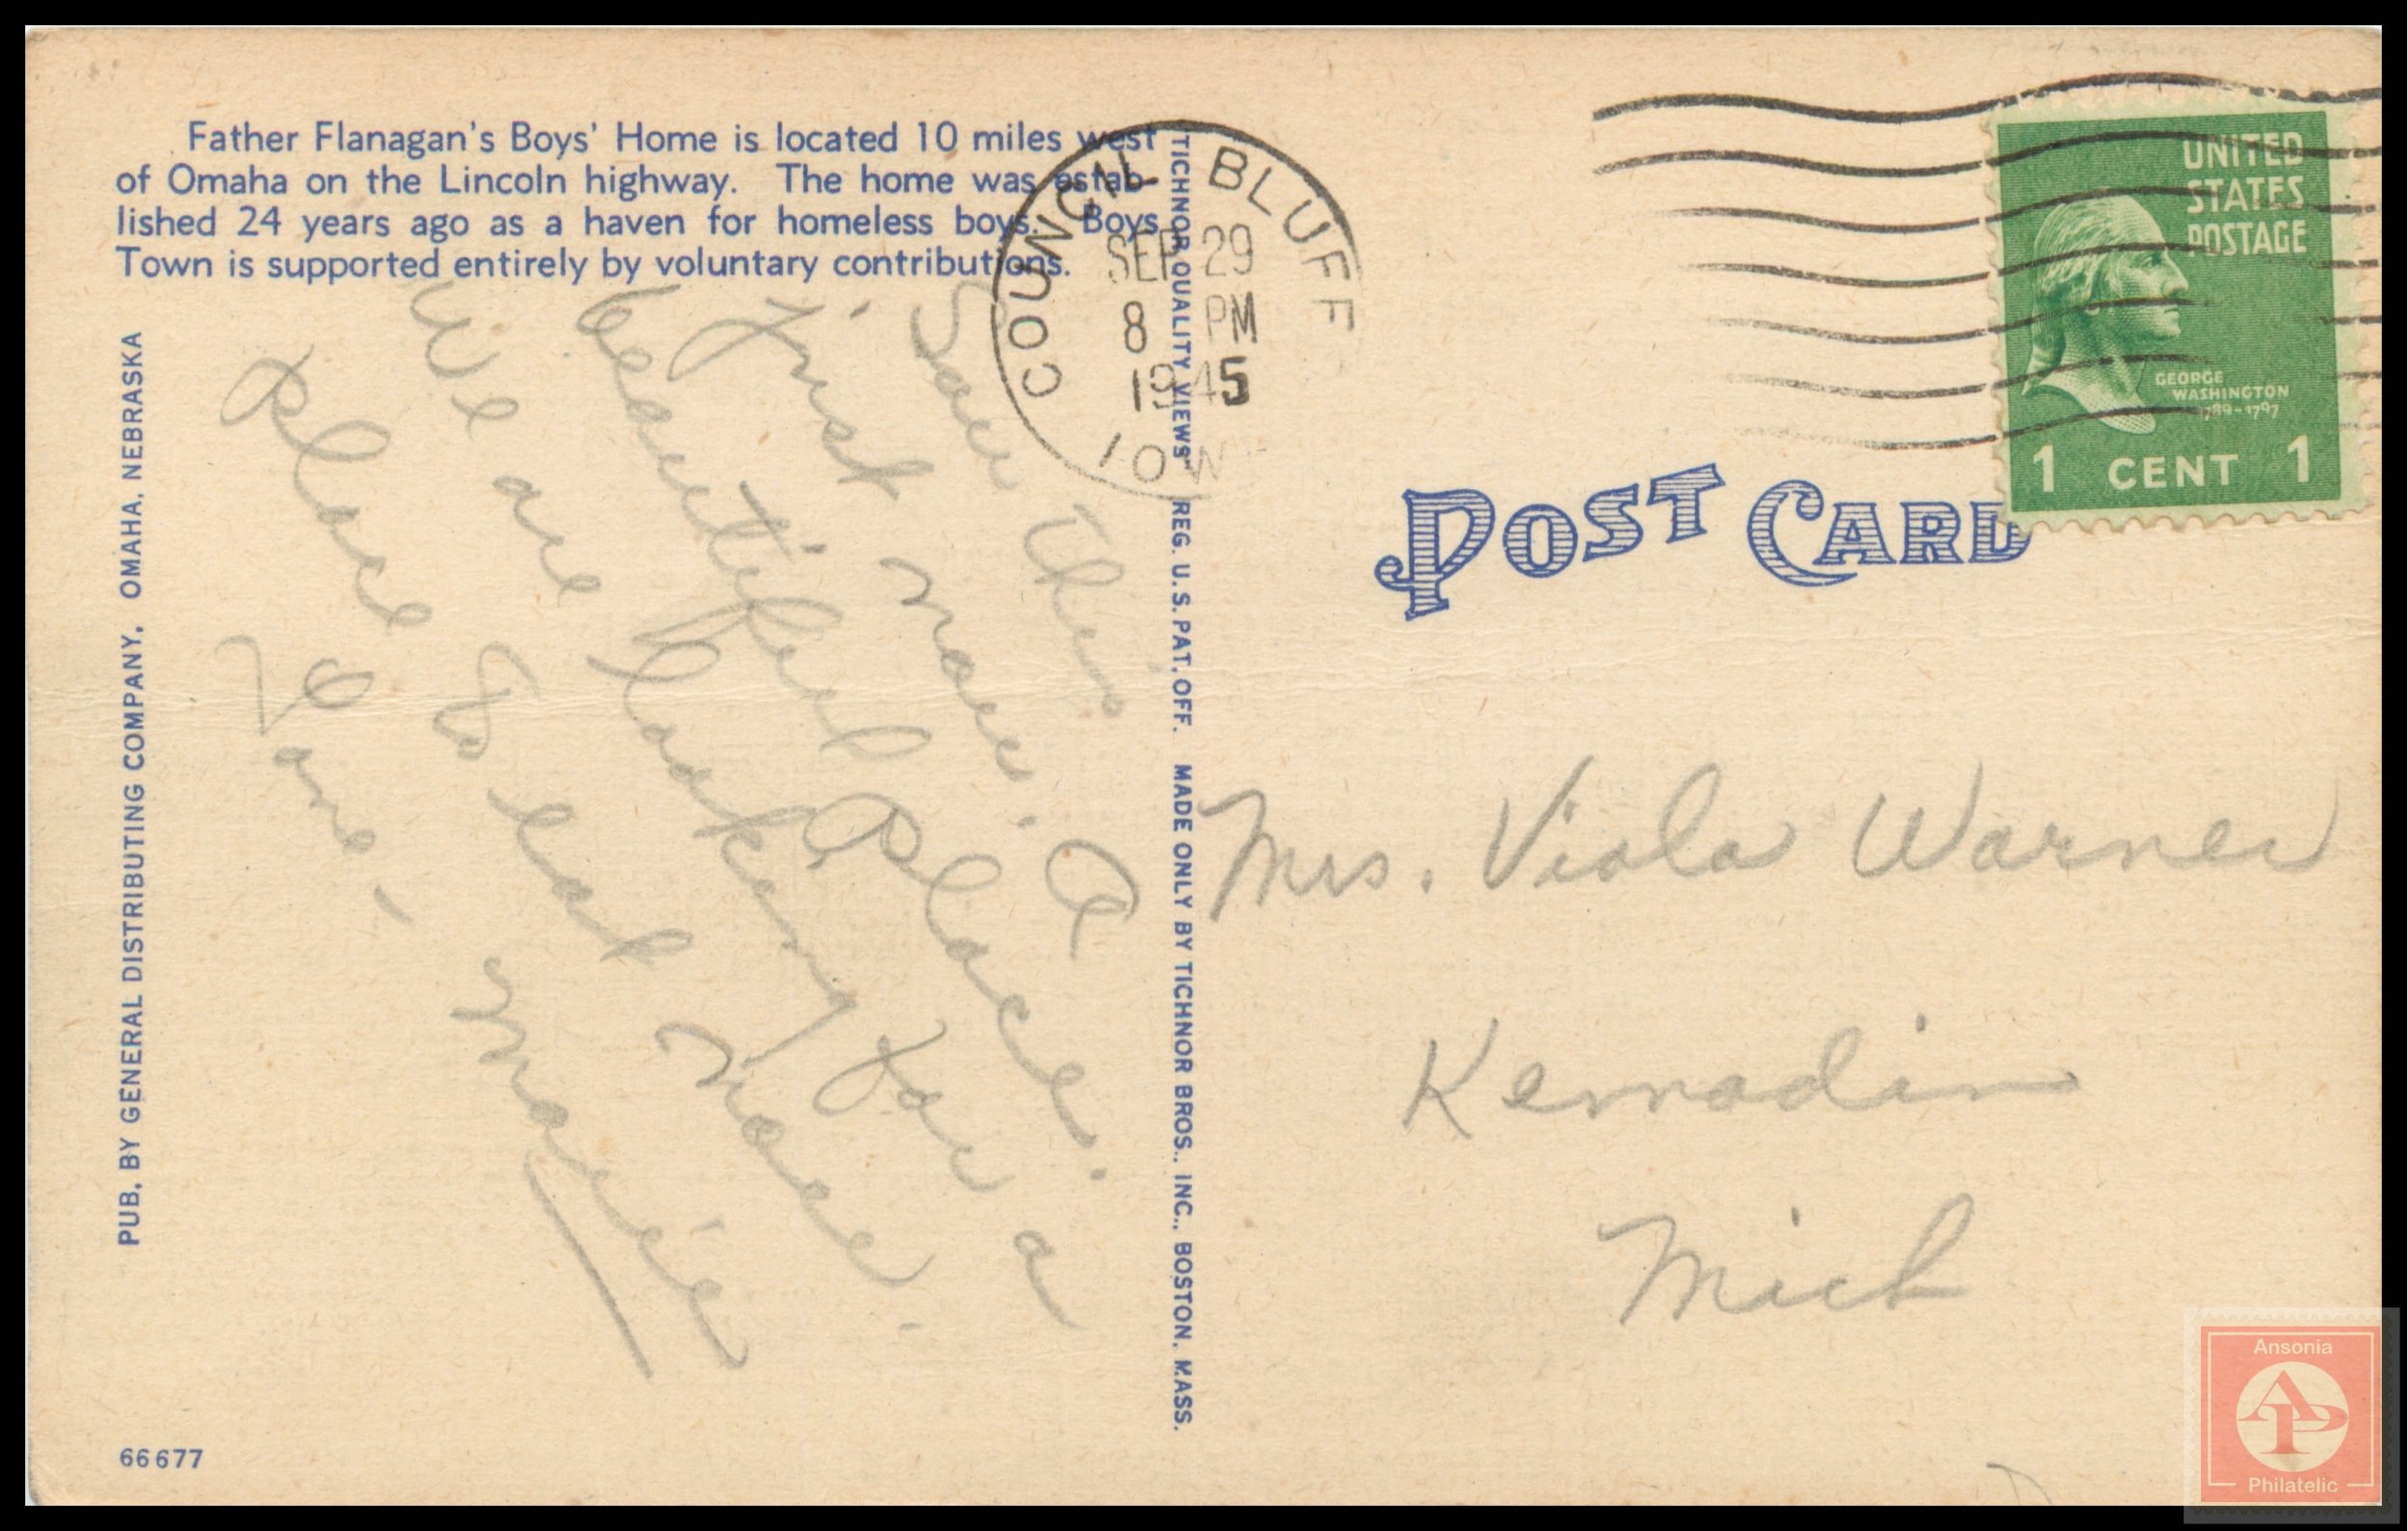 Father Flanagan's Boys' Home is located 10 miles west
of Omaha on the Lincoln highway. The home was estab-
lished 24 years ago as a haven for homeless boys. Boys
Town is supported entirely by voluntary contributions.
PUB. BY GENERAL DISTRIBUTING COMPANY, OMAHA, NEBRASKA
66677
Saw this
first now. A
beautiful place.
We are looking for a
place to eat now.
Love,
Marie
TICHNOR QUALITY VIEWS REG. U.S. PAT. OFF. MADE ONLY BY TICHNOR BROS., INC., BOSTON, MASS.
COUNCIL BLUFF
SEP 29
8 PM
1945
IOWA
UNITED
STATES
POSTAGE
GEORGE
WASHINGTON
1789-1797
1 CENT 1
POST CARD
Mrs. Viola Warner
Kewadin
Mich
Ansonia
AP
Philatelic